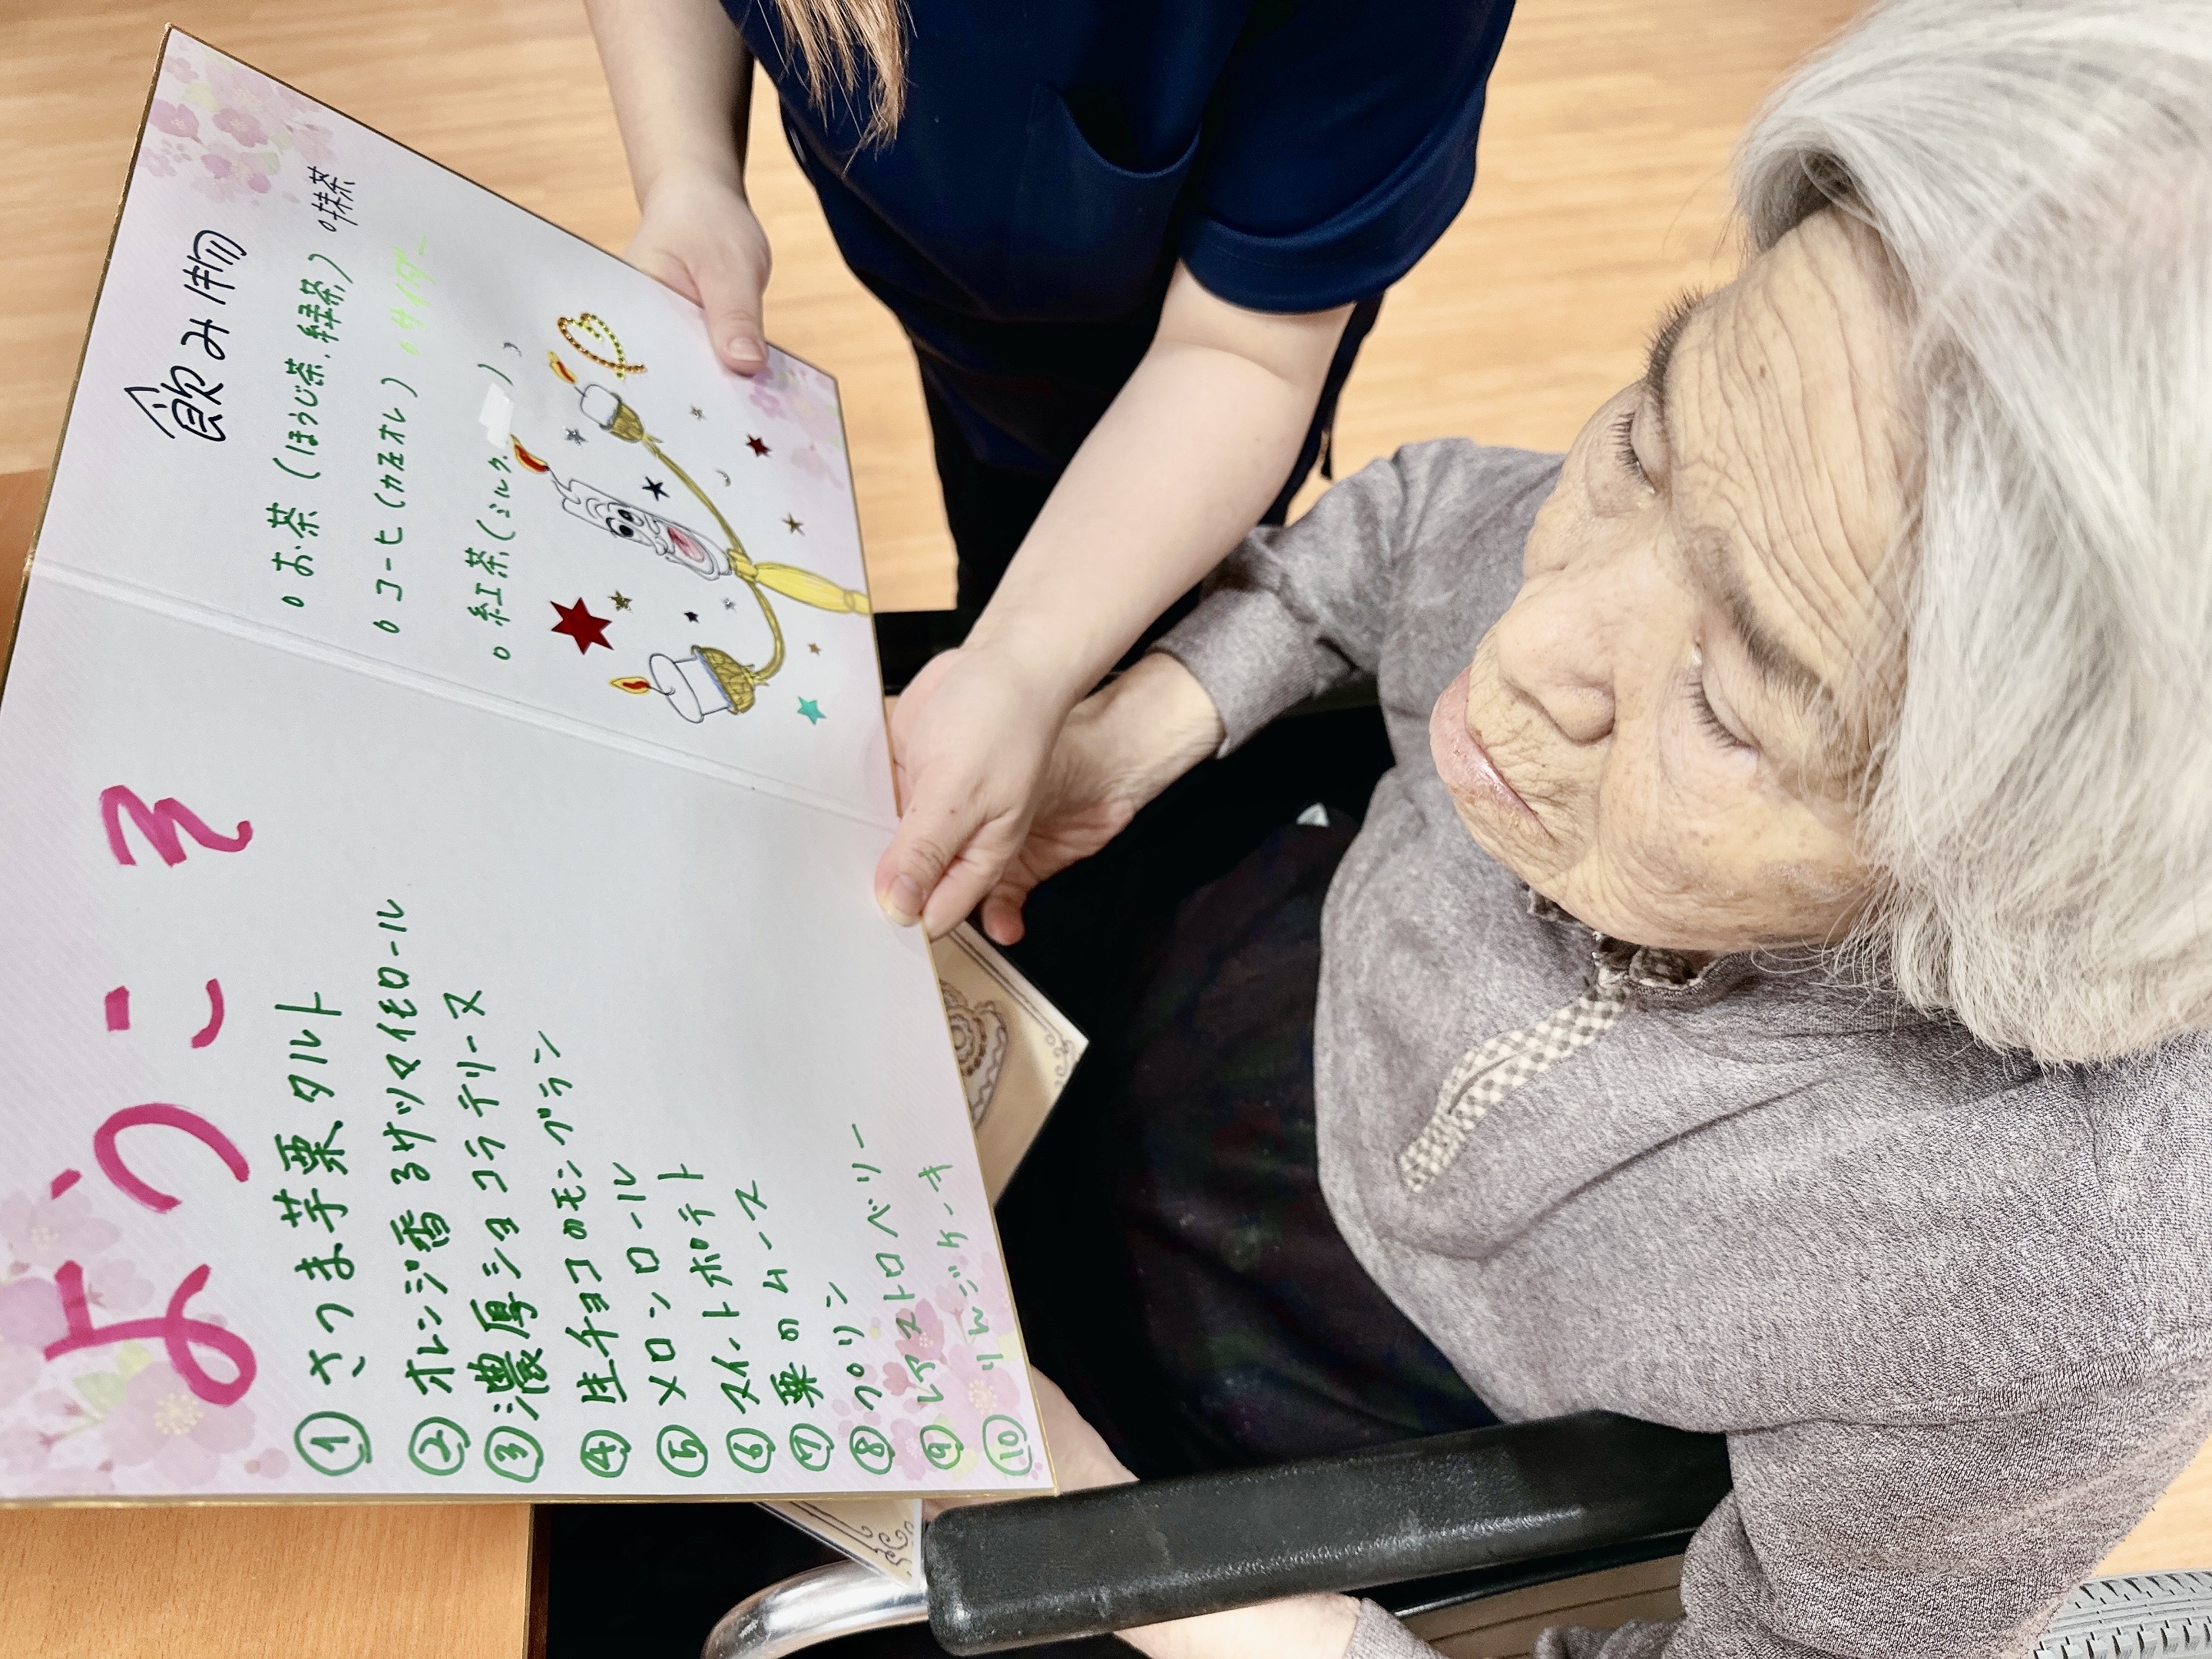 ようこそ
① さつま芋栗タルト
② オレンジ香るサツマイモロール
③ 濃厚ショコラテリーヌ
④ 生チョコのモンブラン
⑤ メロンロール
⑥ スイートポテト
⑦ 栗のムース
⑧ プリン
⑨ レアストロベリー
⑩ りんごケーキ
飲み物
○お茶(ほうじ茶、緑茶) ○抹茶
○コーヒ(カフェオレ) ○サイダー
○紅茶(ミルク、)